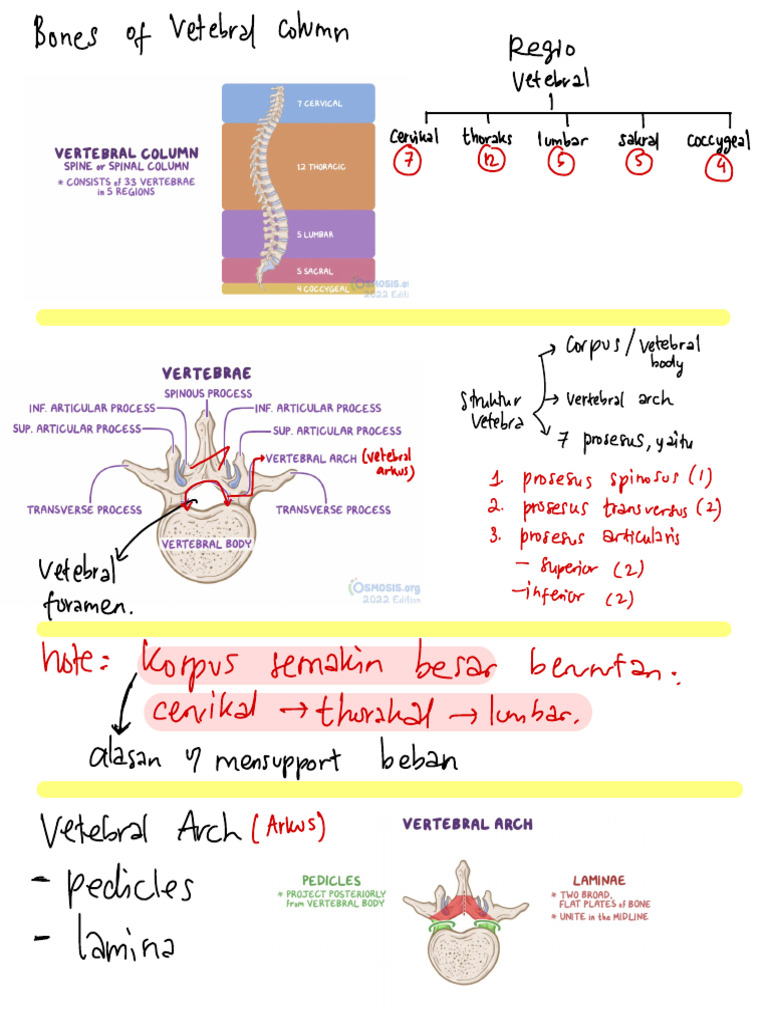 Bones of Vetebral Column
Regio
Vetebral
cervikal thoraks lumbar sakral coccygeal
7 12 5 5 4
VERTEBRAL COLUMN
SPINE or SPINAL COLUMN
* CONSISTS of 33 VERTEBRAE
in 5 REGIONS
7 CERVICAL
12 THORACIC
5 LUMBAR
5 SACRAL
4 COCCYGEAL
OSMOSIS.or
2022 Editi
VERTEBRAE
SPINOUS PROCESS
INF. ARTICULAR PROCESS
INF. ARTICULAR PROCESS
SUP. ARTICULAR PROCESS
SUP. ARTICULAR PROCESS
VERTEBRAL ARCH (vetebral
arkus)
TRANSVERSE PROCESS
TRANSVERSE PROCESS
VERTEBRAL BODY
Vetebral
foramen.
OSMOSIS.org
2022 Edition
Struktur
vetebra
→ Corpus / vetebral
body
→ vertebral arch
→ 7 prosesus, yaitu
1. prosesus spinosus (1)
2. prosesus transversus (2)
3. prosesus articularis
- superior (2)
- inferior (2)
Note: korpus semakin besar berurutan.
cervikal → thorakal → lumbar.
alasan y mensupport beban
Vetebral Arch (Arkus)
- pedicles
- lamina
VERTEBRAL ARCH
PEDICLES
* PROJECT POSTERIORLY
from VERTEBRAL BODY
LAMINAE
* TWO BROAD,
FLAT PLATES of BONE
* UNITE in the MIDLINE